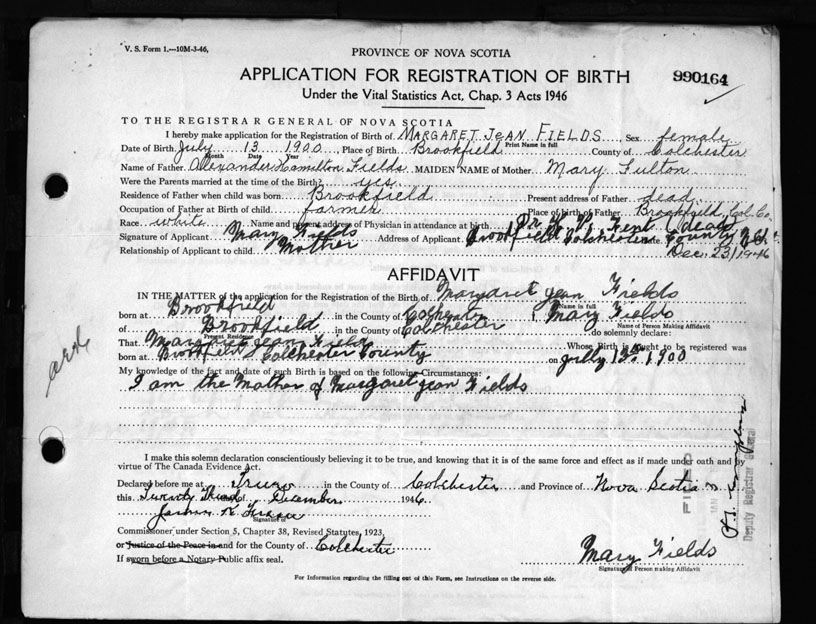 V. S. Form 1.—10M-3-46,
PROVINCE OF NOVA SCOTIA
APPLICATION FOR REGISTRATION OF BIRTH
990164
Under the Vital Statistics Act, Chap. 3 Acts 1946
TO THE REGISTRAR GENERAL OF NOVA SCOTIA
I hereby make application for the Registration of Birth of MARGARET JEAN FIELDS Sex female
Print Name in full
Date of Birth July 13 1900 Place of Birth Brookfield County of Colchester
Month Date Year
Name of Father Alexander Hamilton Fields MAIDEN NAME of Mother Mary Fulton
Were the Parents married at the time of the Birth? yes
Residence of Father when child was born Brookfield Present address of Father dead
Occupation of Father at Birth of child farmer Place of birth of Father Brookfield, Col. Co.
Race white Name and present address of Physician in attendance at birth Dr. Kent (dead)
Signature of Applicant Mary Fields Address of Applicant Brookfield Colchester County N.S.
Relationship of Applicant to child Mother Date Dec. 23/1946
AFFIDAVIT
IN THE MATTER of the application for the Registration of the Birth of Margaret Jean Fields
Name in full
born at Brookfield in the County of Colchester I, Mary Fields
Name of Person Making Affidavit
of Brookfield in the County of Colchester do solemnly declare:
Present Residence
That Margaret Jean Fields Whose Birth is sought to be registered was
born at Brookfield Colchester County on July 13th 1900
My knowledge of the fact and date of such Birth is based on the following Circumstances:
I am the Mother of Margaret Jean Fields
I make this solemn declaration conscientiously believing it to be true, and knowing that it is of the same force and effect as if made under oath and by
virtue of The Canada Evidence Act.
Declared before me at Truro in the County of Colchester and Province of Nova Scotia
this Twenty Third of December 1946
Signature of
Commissioner under Section 5, Chapter 38, Revised Statutes, 1923,
or Justice of the Peace in and for the County of Colchester
If sworn before a Notary Public affix seal.
Mary Fields
Signature of Person making Affidavit
For Information regarding the filling out of this Form, see Instructions on the reverse side.
FILED
JAN
Deputy Registrar General